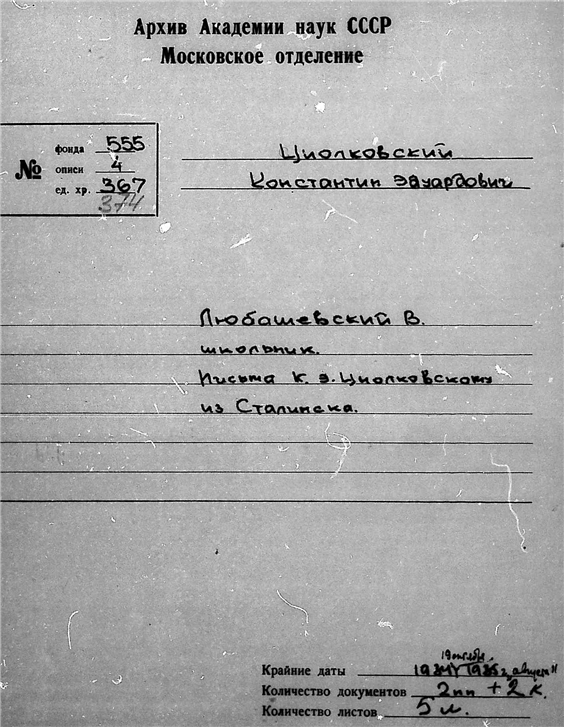 Архив Академии наук СССР
Московское отделение
№
фонда 555
описи 4
ед. хр. 367
374
Циолковский
Константин Эдуардович
Любашевский В.
школьник.
Письма К. Э. Циолковскому
из Сталинска.
Крайние даты
Количество документов 2 пп + 2 к.
Количество листов 5 л.